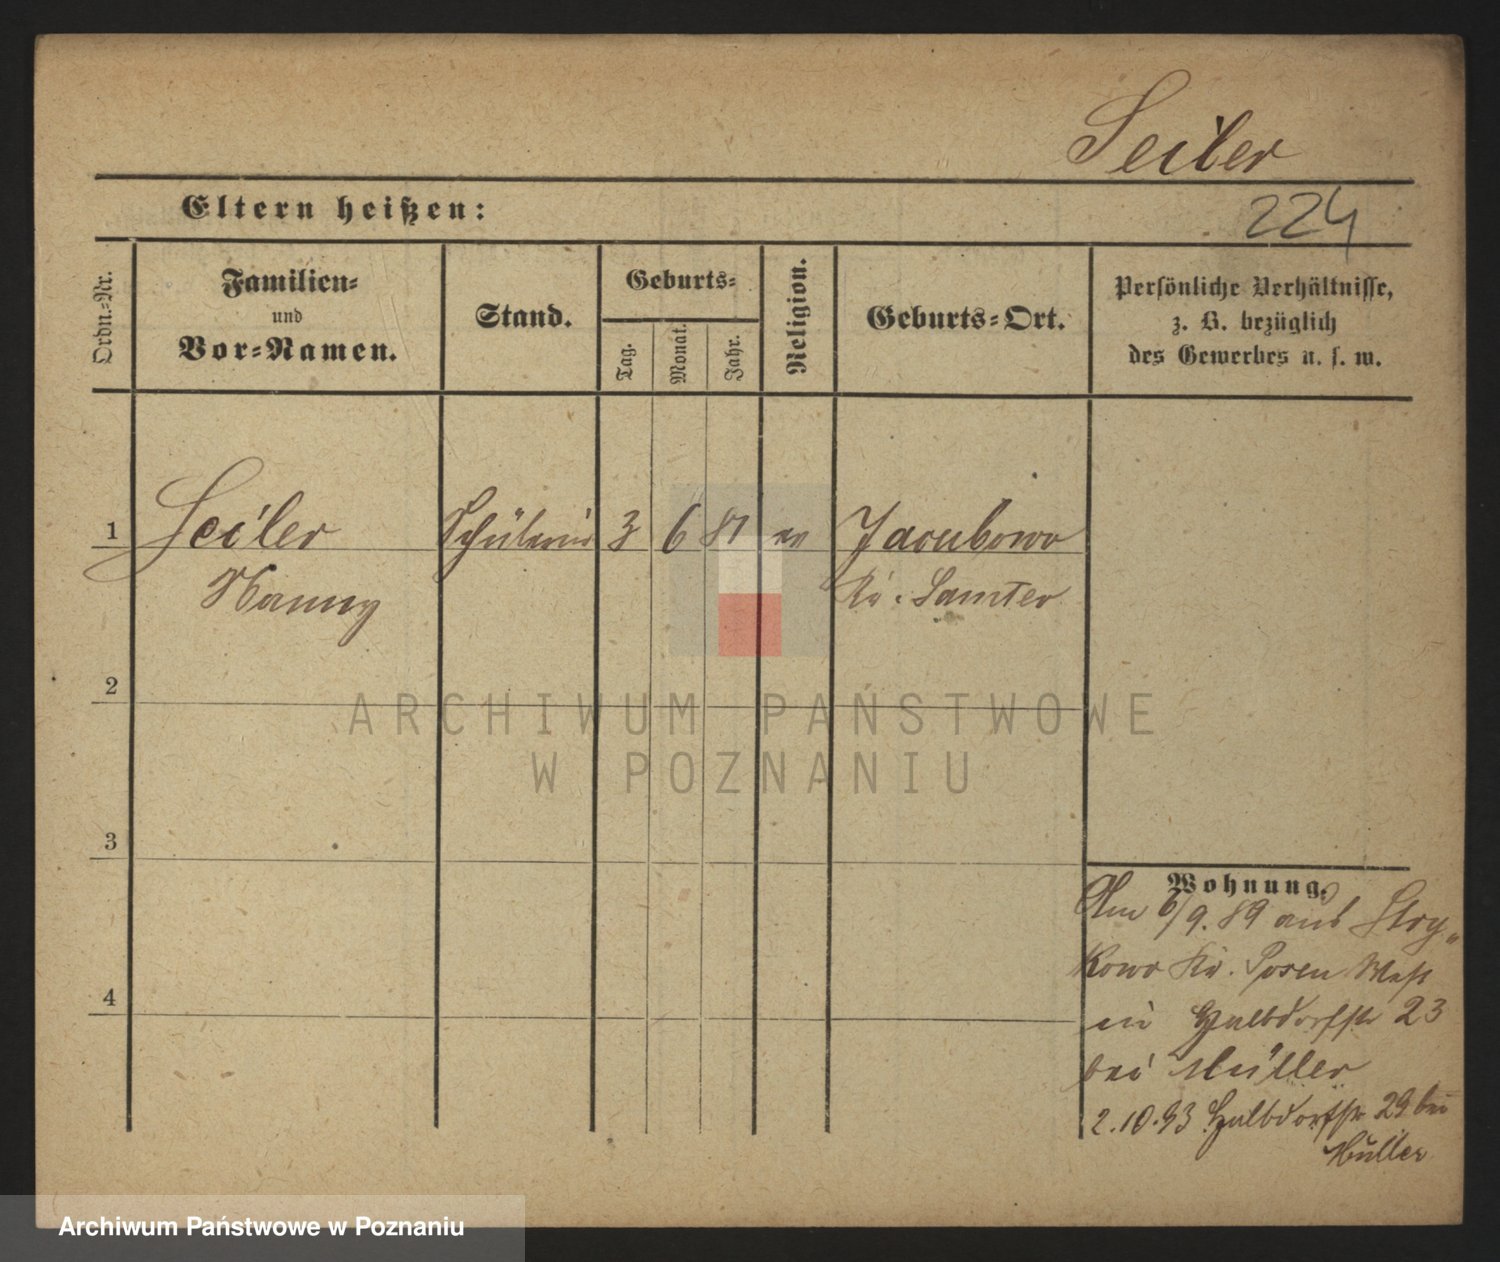 Seiler
Eltern heißen:
224
Ordn.-Nr.
Familien-
und
Vor-Namen.
Stand.
Geburts-
Tag.
Monat.
Jahr.
Religion.
Geburts-Ort.
Persönliche Verhältnisse,
z. B. bezüglich
des Gewerbes u. s. w.
1 Seiler Schülerin 3 6 81 ev Jacubowo
Nanny Kr. Samter
2
ARCHIWUM PAŃSTWOWE
W POZNANIU
3
Wohnung.
Am 6/9. 89 aus Stry-
kowo Kr. Posen West
4
in Halbdorfstr 23
bei Müller
2.10.93 Halbdorfstr 29 bei
Müller
Archiwum Państwowe w Poznaniu